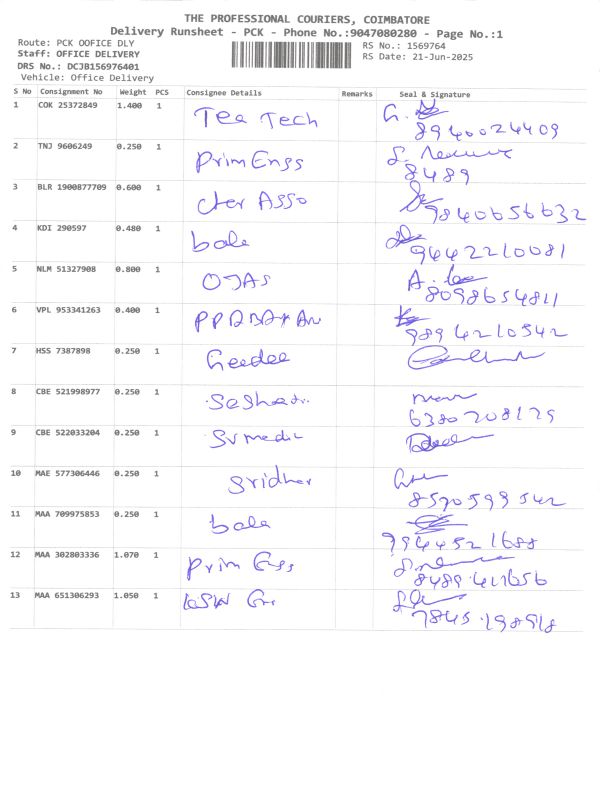 THE PROFESSIONAL COURIERS, COIMBATORE
Delivery Runsheet - PCK - Phone No.:9047080280 - Page No.:1
Route: PCK OOFICE DLY RS No.: 1569764
Staff: OFFICE DELIVERY RS Date: 21-Jun-2025
DRS No.: DCJB156976401
Vehicle: Office Delivery
S No Consignment No Weight PCS Consignee Details Remarks Seal & Signature
1 COK 25372849 1.400 1 Tea Tech 8940024409
2 TNJ 9606249 0.250 1 Prim Engs 8489
3 BLR 1900877709 0.600 1 Asso 9840656632
4 KDI 290597 0.480 1 bala 9442210081
5 NLM 51327908 0.800 1 OJAS 8098654811
6 VPL 953341263 0.400 1 9894210542
7 HSS 7387898 0.250 1 Geedee
8 CBE 521998977 0.250 1 6380208129
9 CBE 522033204 0.250 1
10 MAE 577306446 0.250 1 Sridhar 8570599542
11 MAA 709975853 0.250 1 bala 9944521688
12 MAA 302803336 1.070 1 Prim Engs 8489411656
13 MAA 651306293 1.050 1 7845198918